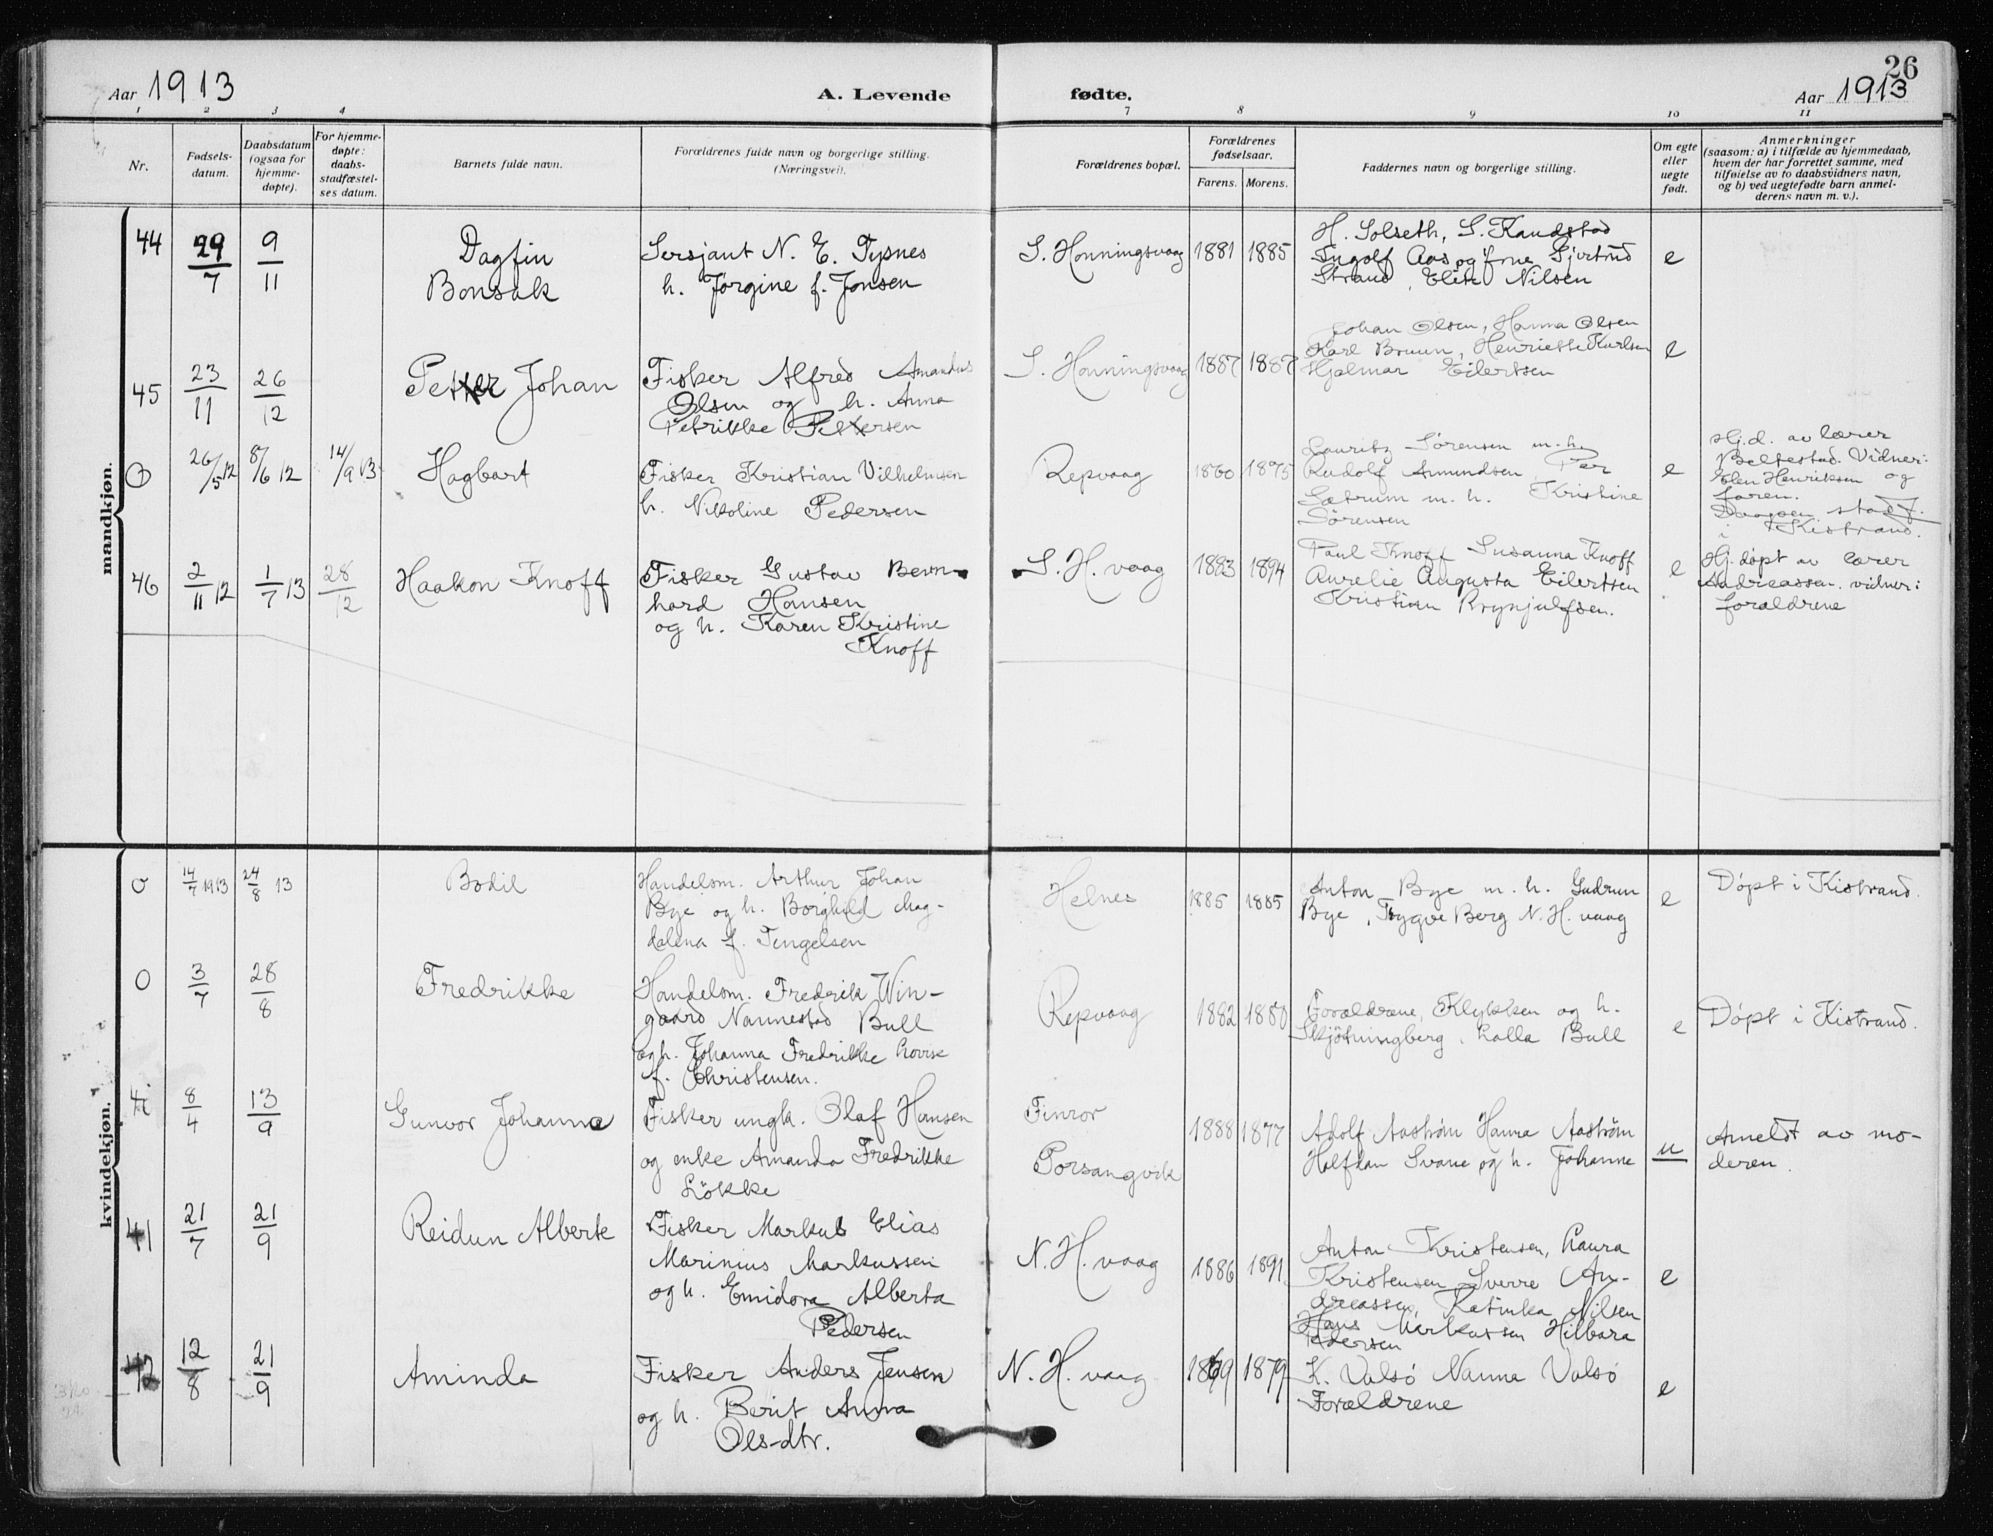 26
Aar 1913
A. Levende
fødte.
Aar 1913
1 2 3 4 7 8 9 10 11
Nr.
Fødsels-
datum.
Daabsdatum
(ogsaa for
hjemme-
døpte).
For hjemme-
døpte:
daabs-
stadfæstel-
ses datum.
Barnets fulde navn.
Forældrenes fulde navn og borgerlige stilling.
(Næringsvei).
Forældrenes bopæl.
Forældrenes
fødselsaar.
Farens. Morens.
Faddernes navn og borgerlige stilling.
Om egte
eller
uegte
født.
Anmerkninger
(saasom: a) i tilfælde av hjemmedaab,
hvem der har forrettet samme, med
tilføielse av to daabsvidners navn,
og b) ved uegtefødte barn anmel-
derens navn m. v.).
mandkjøn.
44
29/7
9/11
Dagfin
Bonsak
Sersjant N. E. Typnes
h. Jørgine f. Jonsen
S. Honningsvaag
1881 1885
H. Solseth, S. Kandstad
Ingolf Aas og frue Gjertrud
Strand, Elen Nilsen
e
45
23/11
26/12
Petter Johan
Fisker Alfred Amandus
Olsen og h. Anna
Petrikke Pettersen
S. Honningsvaag
1887 1887
Johan Olsen, Hanna Olsen
Karl Bruun, Henriette Karlsen
Hjalmar Eilertsen
e
0
26/5 12
8/6 12
14/9 13
Hagbart
Fisker Kristian Vilhelmsen
h. Nikoline Pedersen
Repvaag
1860 1875
Lauritz Sørensen m. h.
Rudolf Amundsen Per
Sætrum m. h. Kristine
Sørensen
e
Hj.d. av lærer
Beltestad. Vidner:
Elen Henriksen og
faren.
stadf.
i Kistrand.
46
2/11 12
1/7 13
28/12
Haakon Knoff
Fisker Gustav Bern-
hard Hansen
og h. Karen Kristine
Knoff
S. H. vaag
1883 1894
Paul Knoff Susanna Knoff
Aurelie Augusta Eilertsen
Kristian Brynjulfsen.
e
Hj. døpt av lærer
Andreassen. vidner:
forældrene
kvindekjøn.
0
14/7 1913
24/8 13
Bodil
Handelsm. Arthur Johan
Bye og h. Borghild Mag-
dalena f. Tengelsen
Helnes
1885 1885
Anton Bye m. h. Gudrun
Bye, Trygve Berg N. H. vaag
e
Døpt i Kistrand.
0
3/7
28/8
Fredrikke
Handelsm. Fredrik Win-
gaard Nannestad Bull
og h. Johanna Fredrikke Lovise
f. Christensen.
Repvaag
1882 1880
Forældrene, Klykken og h.
Skjøtningberg. Lalla Bull
e
Døpt i Kistrand.
8/4
13/9
Gunvor Johanne
Fisker ungk. Olaf Hansen
og enke Amanda Fredrikke
Løkke
Finvor
Porsangvik
1888 1877
Adolf Aastrøm Hanna Aastrøm
Halfdan Svane og h. Johanne
u
Ameldt av mo-
deren.
41
21/7
21/9
Reidun Alberte
Fisker Markus Elias
Marinius Markussen
og h. Emidora Alberta
Pedersen
N. H. vaag
1886 1891
Anton Kristensen, Laura
Kristensen Sverre An-
dreassen, Katinka Nilsen
Hans Markussen Hilbara
Pedersen
e
42
12/8
21/9
Aminda
Fisker Anders Jensen
og h. Berit Anna
Ols-dtr.
N. H. vaag
1869 1879
K. Valsø Nanna Valsø
Forældrene
e